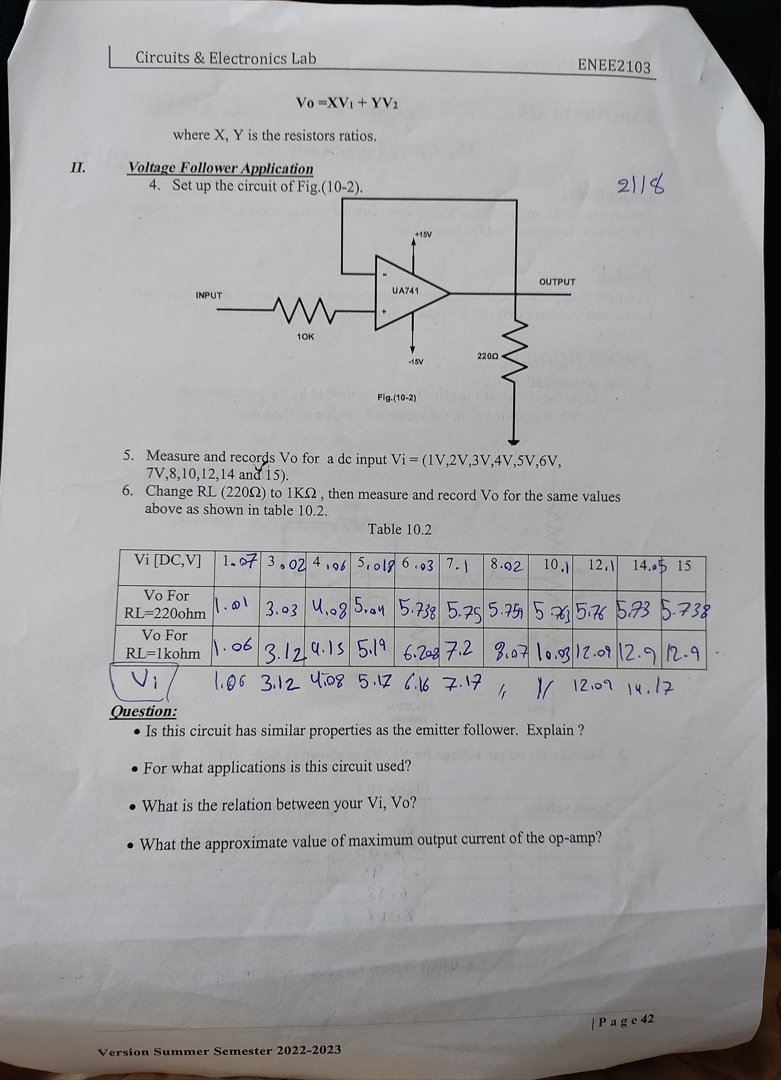 Circuits & Electronics Lab
ENEE2103
Vo =XV1 + YV2
where X, Y is the resistors ratios.
II. Voltage Follower Application
4. Set up the circuit of Fig.(10-2).
2118
+15V
-
UA741
OUTPUT
INPUT
+
10K
-15V
220Ω
Fig.(10-2)
5. Measure and records Vo for a dc input Vi = (1V,2V,3V,4V,5V,6V,
7V,8,10,12,14 and 15).
6. Change RL (220Ω) to 1KΩ , then measure and record Vo for the same values
above as shown in table 10.2.
Table 10.2
Vi [DC,V] 1.07 3.02 4.06 5.018 6.03 7.1 8.02 10.1 12.1 14.05 15
Vo For
RL=220ohm 1.01 3.03 4.08 5.04 5.738 5.75 5.759 5.763 5.76 5.73 5.738
Vo For
RL=1kohm 1.06 3.12 4.15 5.19 6.208 7.2 8.07 10.03 12.09 12.9 12.9
Vi 1.06 3.12 4.08 5.17 6.16 7.17 12.09 14.17
Question:
• Is this circuit has similar properties as the emitter follower. Explain ?
• For what applications is this circuit used?
• What is the relation between your Vi, Vo?
• What the approximate value of maximum output current of the op-amp?
| P a g e 42
Version Summer Semester 2022-2023